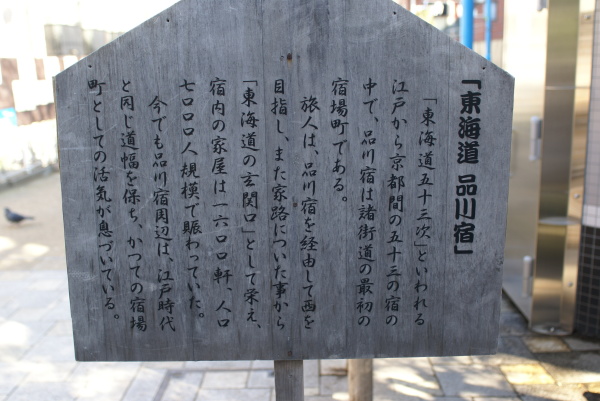 「東海道 品川宿」
「東海道五十三次」といわれる
江戸から京都間の五十三の宿の
中で、品川宿は諸街道の最初の
宿場町である。
旅人は、品川宿を経由して西を
目指し、また家路についた事から
「東海道の玄関口」として栄え、
宿内の家屋は一六〇〇軒、人口
七〇〇〇人規模で賑わっていた。
今でも品川宿周辺は、江戸時代
と同じ道幅を保ち、かつての宿場
町としての活気が息づいている。